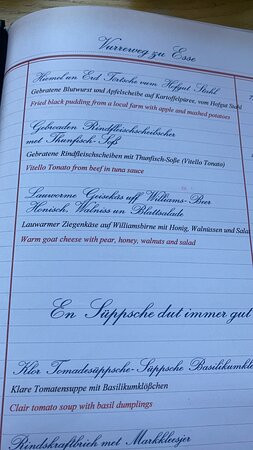 Vurreweg zu Esse
Himel un Erd Törtsche vum Hofgut Stahl
Gebratene Blutwurst und Apfelscheibe auf Kartoffelpüree, vom Hofgut Stahl
Fried black pudding from a local farm with apple and mashed potatoes
Gebroaden Rindfleischscheibscher
met Thunfisch-Soß
Gebratene Rindfleischscheiben mit Thunfisch-Soße (Vitello Tonato)
Vitello Tonato from beef in tuna sauce
Lauworme Geisekäs uff Williams-Beer
Honisch, Walniss un Blattsalade
Lauwarmer Ziegenkäse auf Williamsbirne mit Honig, Walnüssen und Salat
Warm goat cheese with pear, honey, walnuts and salad
En Süppsche dut immer gut
Klor Tomadesüppsche-Süppsche Basilikumkle
Klare Tomatensuppe mit Basilikumklößchen
Clair tomato soup with basil dumplings
Rindskraftbrieh met Markkleesjer